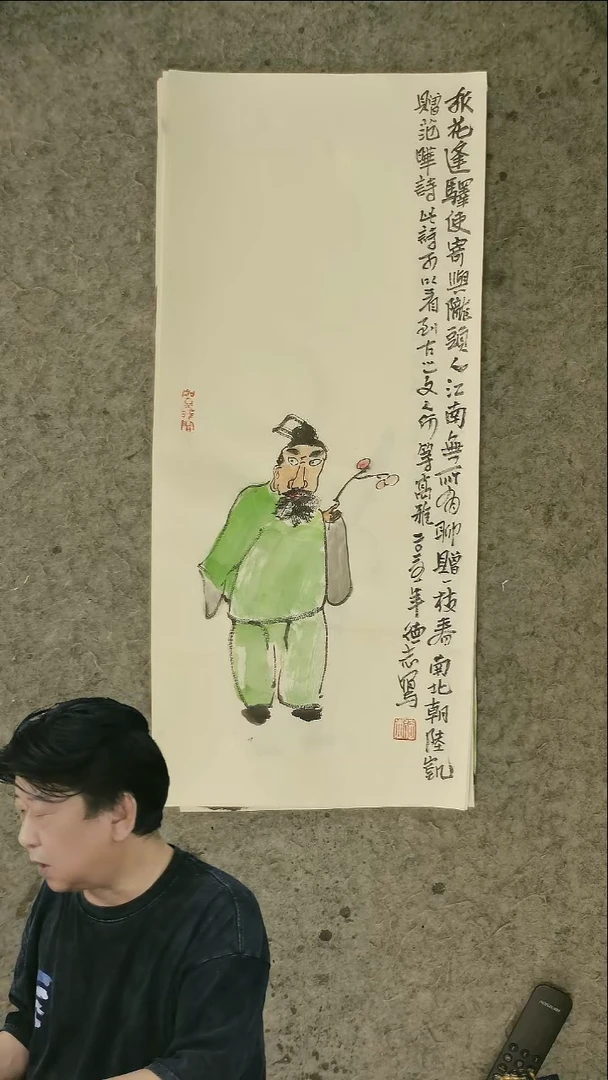 折花逢驛使寄與隴頭人江南無所有聊贈一枝春南北朝陸凱
贈范曄詩此詩可以看到古之文人何等高雅二〇二五年德志寫